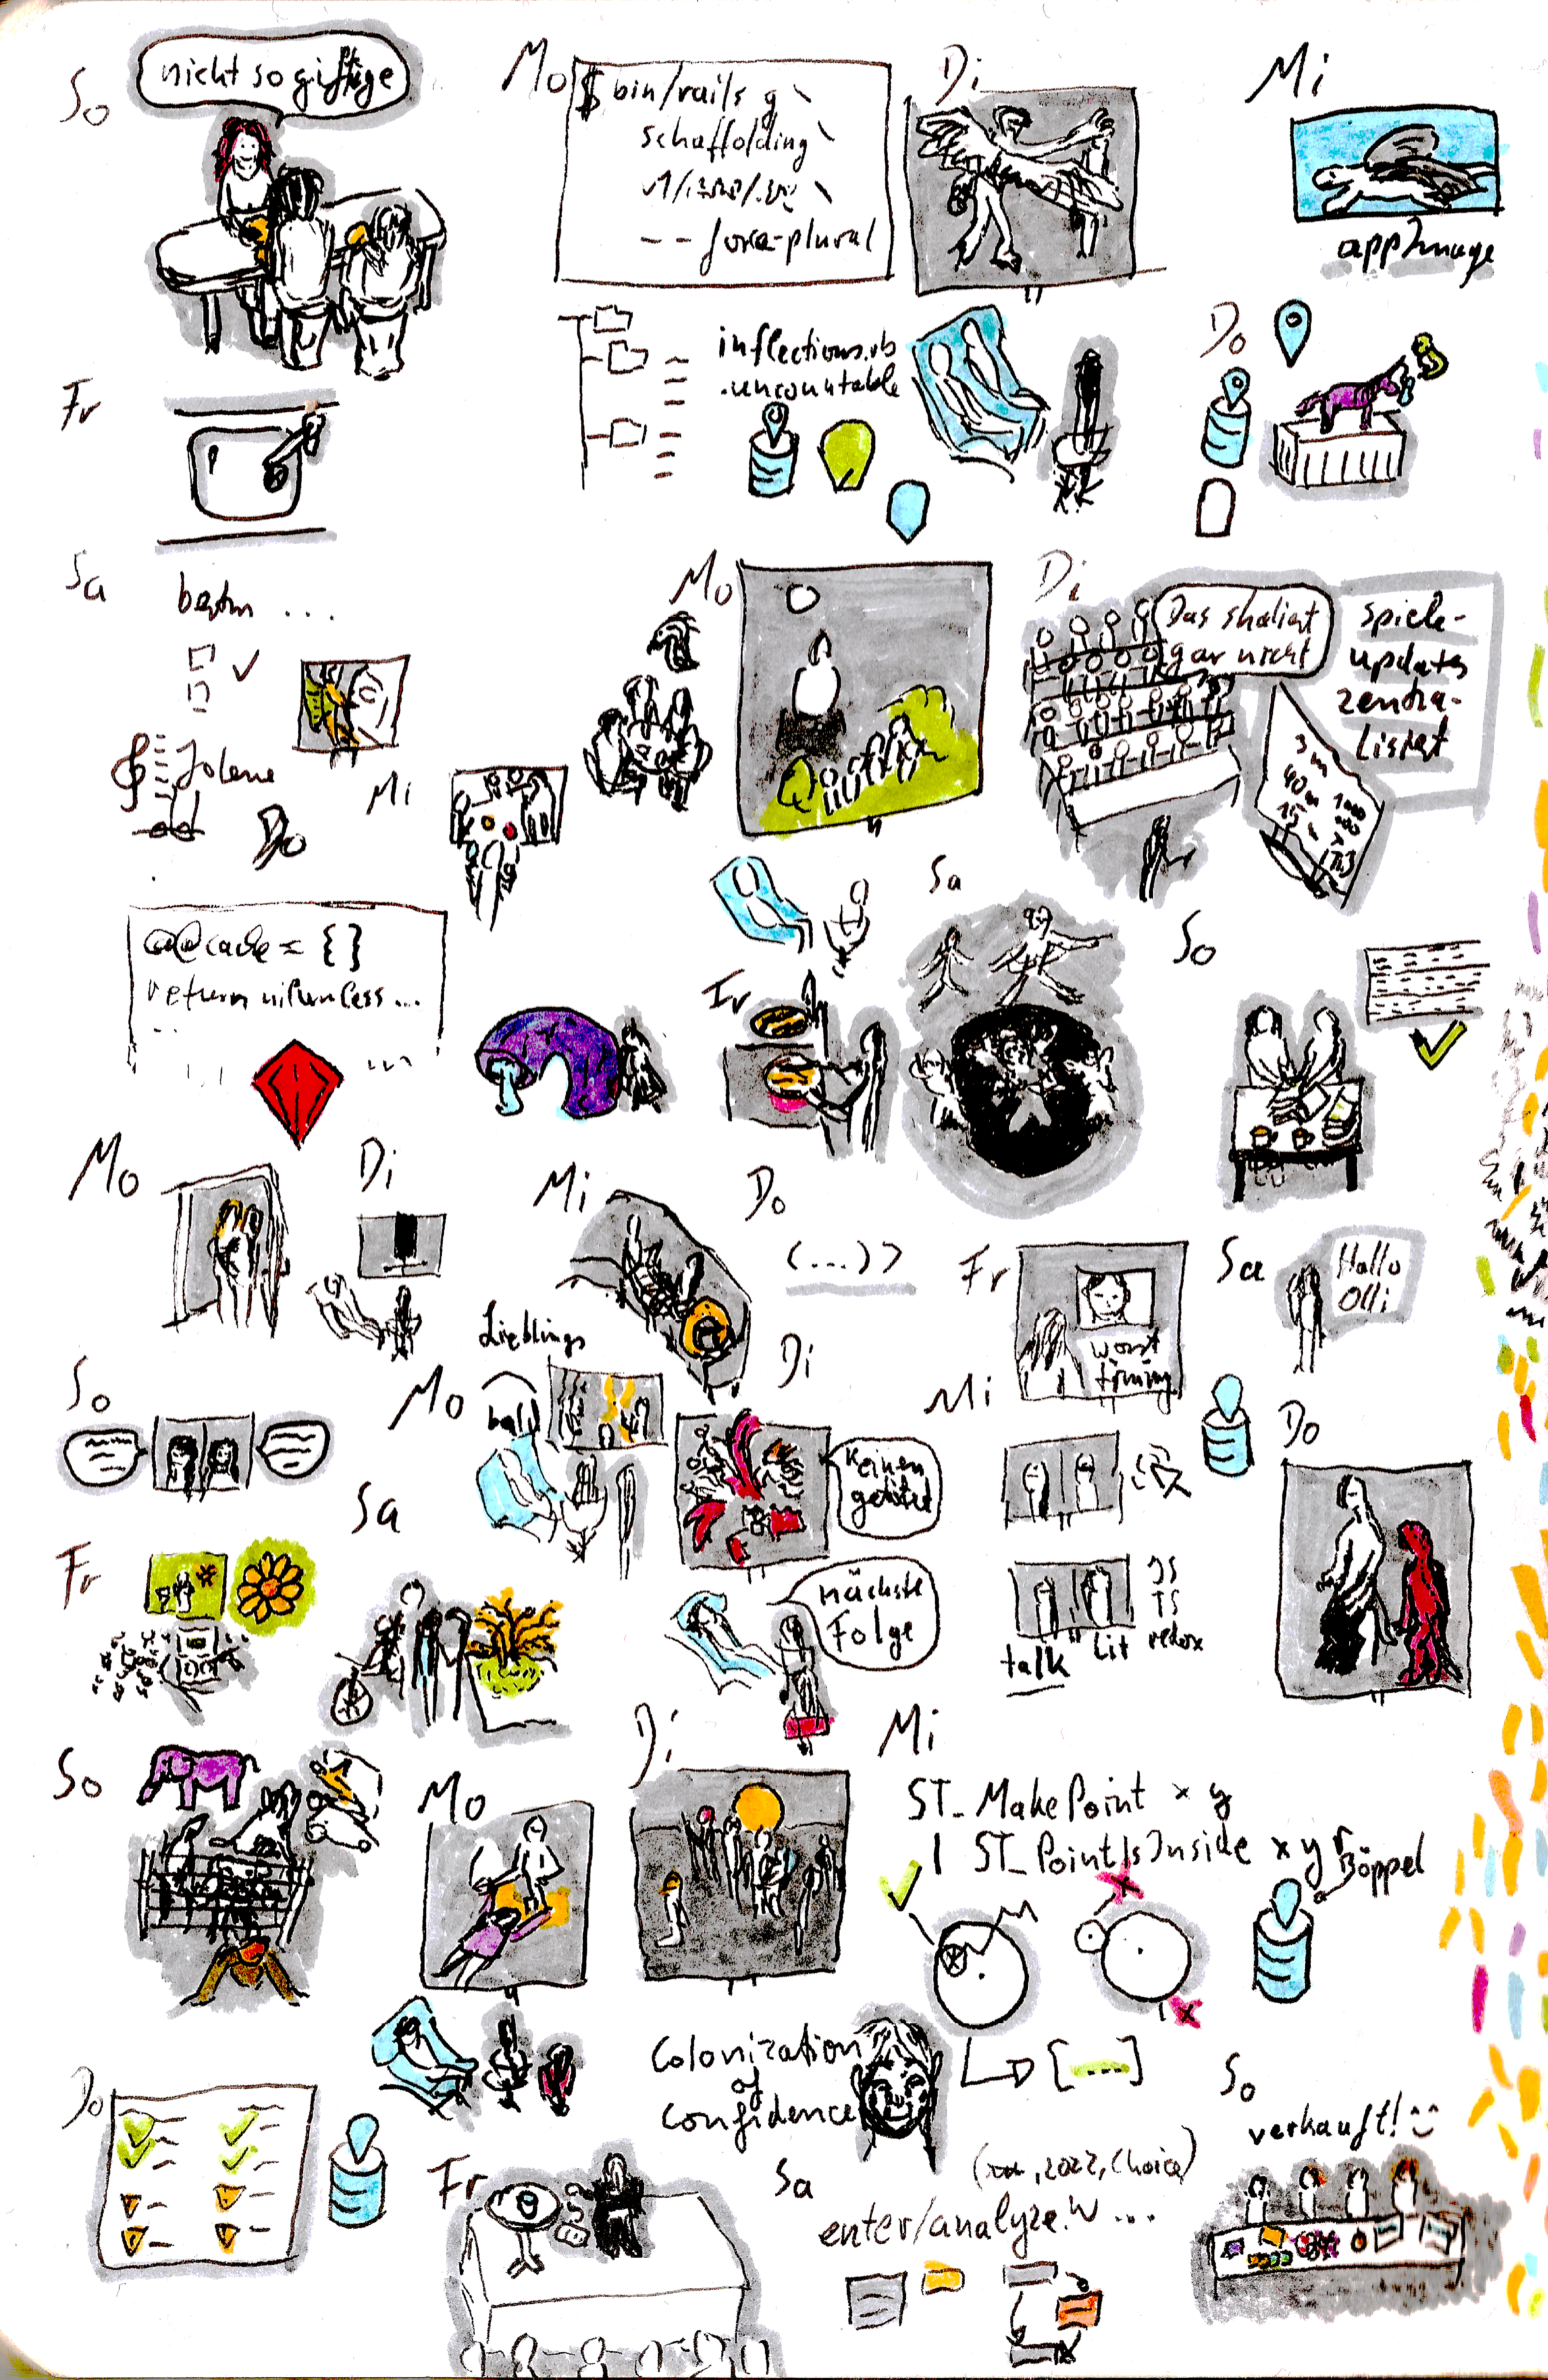 So
nicht so giftige
Mo
$ bin/rails g \
schaffolding \
-- force-plural
Di
Mi
appImage
inflections.rb
.uncountable
Do
Fr
Sa
...
Jolene
Mi
Do
Mo
Di
Das skaliert
gar nicht
Spiele-
updates
zentra-
lisiert
3 m
40 m
15 x
1000
000
>
@@cache = {}
return unless ...
...
Fr
Sa
So
Mo
Di
Mi
Do
(...)>
Fr
worst
timing
Sa
Hallo
Olli
So
Lieblings
Mo
ball
Di
Keinen
getötet
nächste
Folge
Mi
JS
TS
redox
talk
Lit
Do
Fr
Sa
So
Mo
Di
Mi
ST_MakePoint x y
ST_PointIsInside x y r
Böppel
[----]
Do
Colonization
of
Confidence
Fr
Sa
, 2022, Choice)
enter/analyze.w ...
So
verkauft!